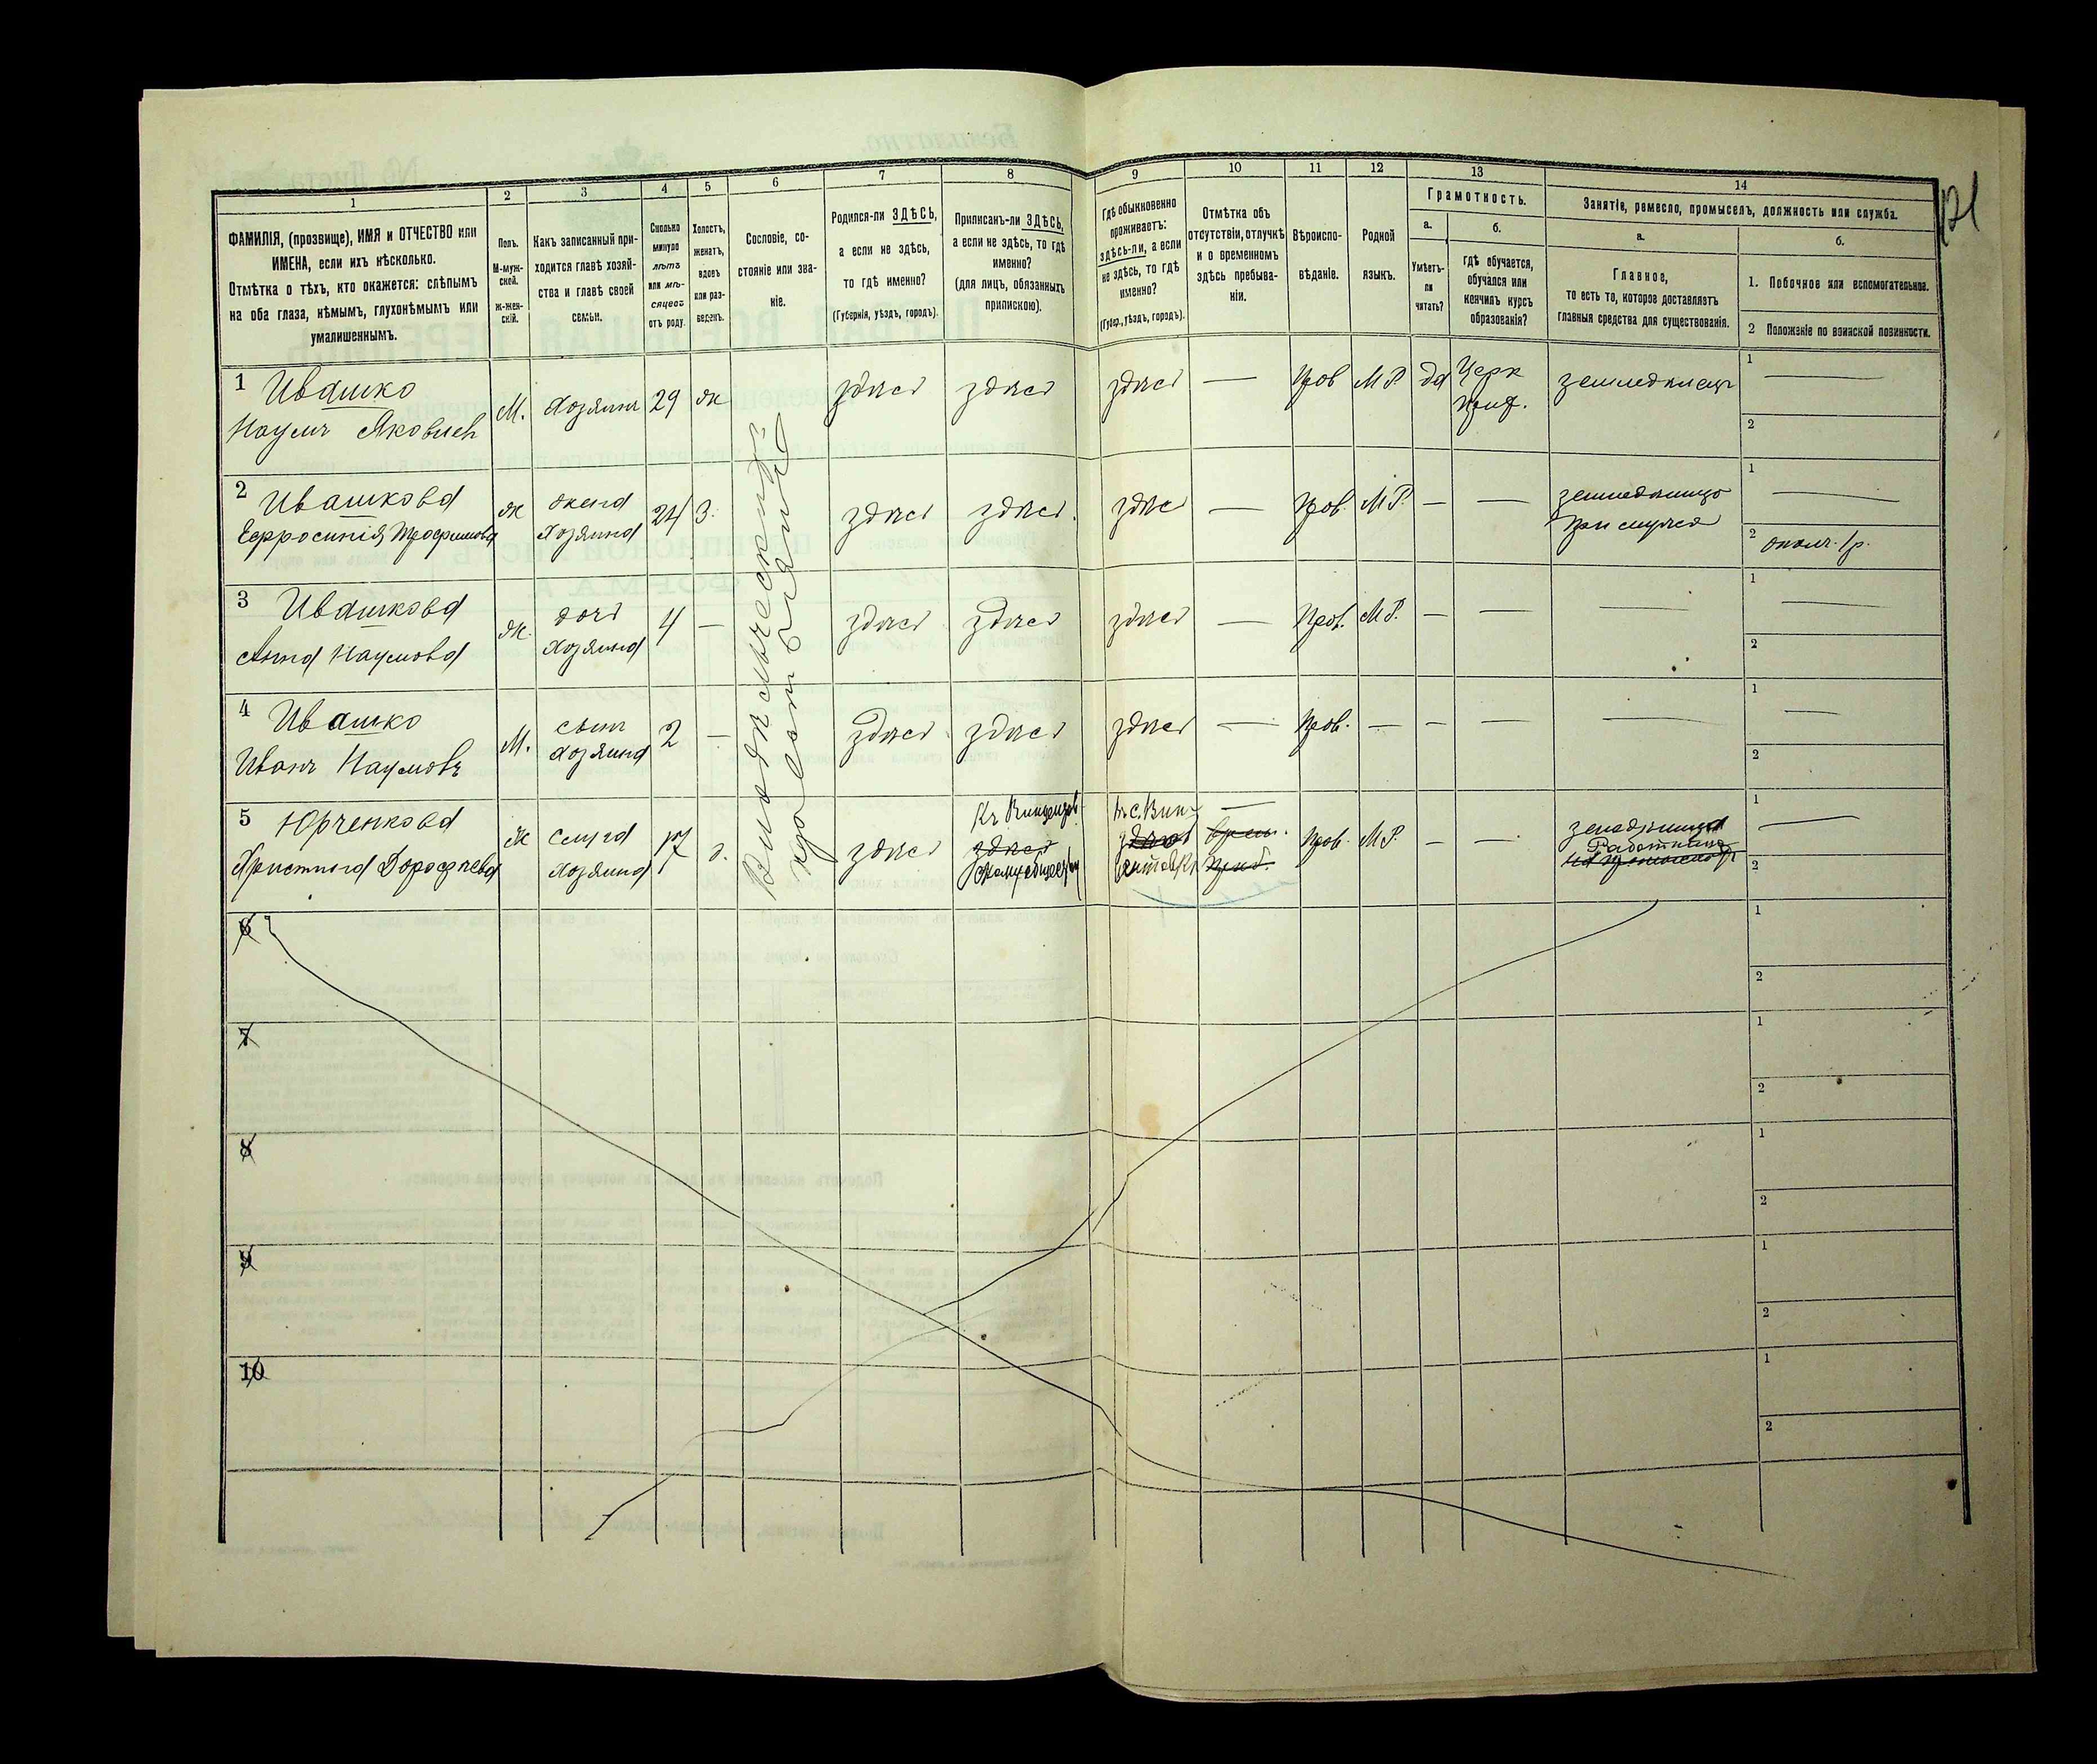 121
1
ФАМИЛІЯ, (прозвище), ИМЯ и ОТЧЕСТВО или
ИМЕНА, если ихъ нѣсколько.
Отмѣтка о тѣхъ, кто окажется: слѣпымъ
на оба глаза, нѣмымъ, глухонѣмымъ или
умалишеннымъ.
2
Полъ.
М-муж-
ской.
Ж-жен-
скій.
3
Какъ записанный при-
ходится главѣ хозяй-
ства и главѣ своей
семьи.
4
Сколько
минуло
лѣтъ
или мѣ-
сяцевъ
отъ роду.
5
Холостъ,
женатъ,
вдовъ
или раз-
веденъ.
6
Сословіе, со-
стояніе или зва-
ніе.
7
Родился-ли ЗДѢСЬ,
а если не здѣсь,
то гдѣ именно?
(Губернія, уѣздъ, городъ).
8
Приписанъ-ли ЗДѢСЬ,
а если не здѣсь, то гдѣ
именно?
(для лицъ, обязанныхъ
припискою).
9
Гдѣ обыкновенно
проживаетъ:
здѣсь-ли, а если
не здѣсь, то гдѣ
именно?
(Губер., уѣздъ, городъ).
10
Отмѣтка объ
отсутствіи, отлучкѣ
и о временномъ
здѣсь пребыва-
ніи.
11
Вѣроиспо-
вѣданіе.
12
Родной
языкъ.
13
Грамотность.
а.
Умѣетъ-
ли
читать?
б.
гдѣ обучается,
обучался или
кончилъ курсъ
образованія?
14
Занятіе, ремесло, промыселъ, должность или служба.
а.
Главное,
то есть то, которое доставляетъ
главныя средства для существованія.
б.
1. Побочное или вспомогательное.
2 Положеніе по воинской повинности.
1 Ивашко
Наумъ Яковлев
М.
Хозяинъ
29
ж
здѣсь
здѣсь
здѣсь
—
Прав
М Р.
да
Церк
земледѣлецъ
1 —
2
2 Ивашкова
Ефросинія Трофимова
ж
жена
Хозяина
24
З.
здѣсь
здѣсь
здѣс
—
Прав.
М Р.
—
—
1 —
2
3 Ивашкова
Анна Наумова
ж.
дочь
Хозяина
4
—
здѣсь
здѣсь
здѣсь
—
Прав.
М Р.
—
—
—
1 —
2
4 Ивашко
Иванъ Наумовъ
М.
сынъ
Хозяина
2
—
здѣсь
здѣсь
здѣсь
—
Прав.
—
—
—
—
1 —
2
5 Юрченкова
Христина Дорофѣева
Ж
слуга
Хозяина
17
д.
здѣсь
здѣсь
—
Прав.
М Р.
—
—
Работница
1 —
2
6
1
2
7
1
2
8
1
2
9
1
2
10
1
2